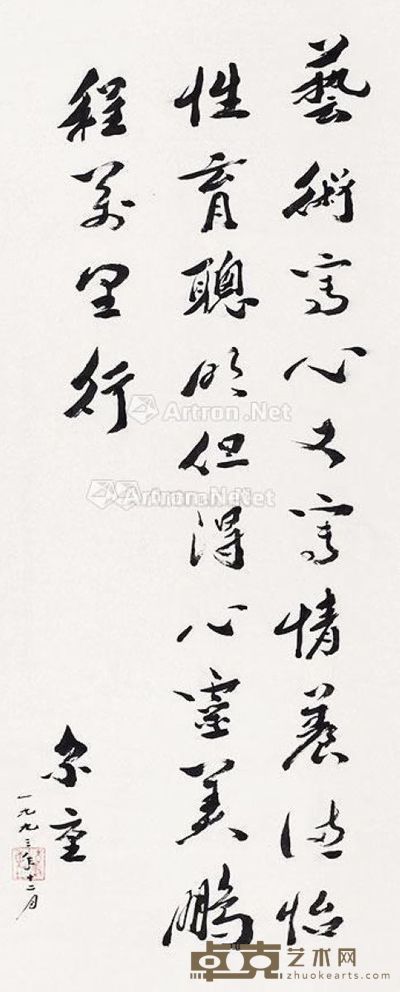 藝術寫心又寫情養德怡
性育聰明但得心靈美鵬
程萬里行
尔重
一九九三年十二月
Artron.Net
Artron.Net
卓克艺术网
zhuokearts.com